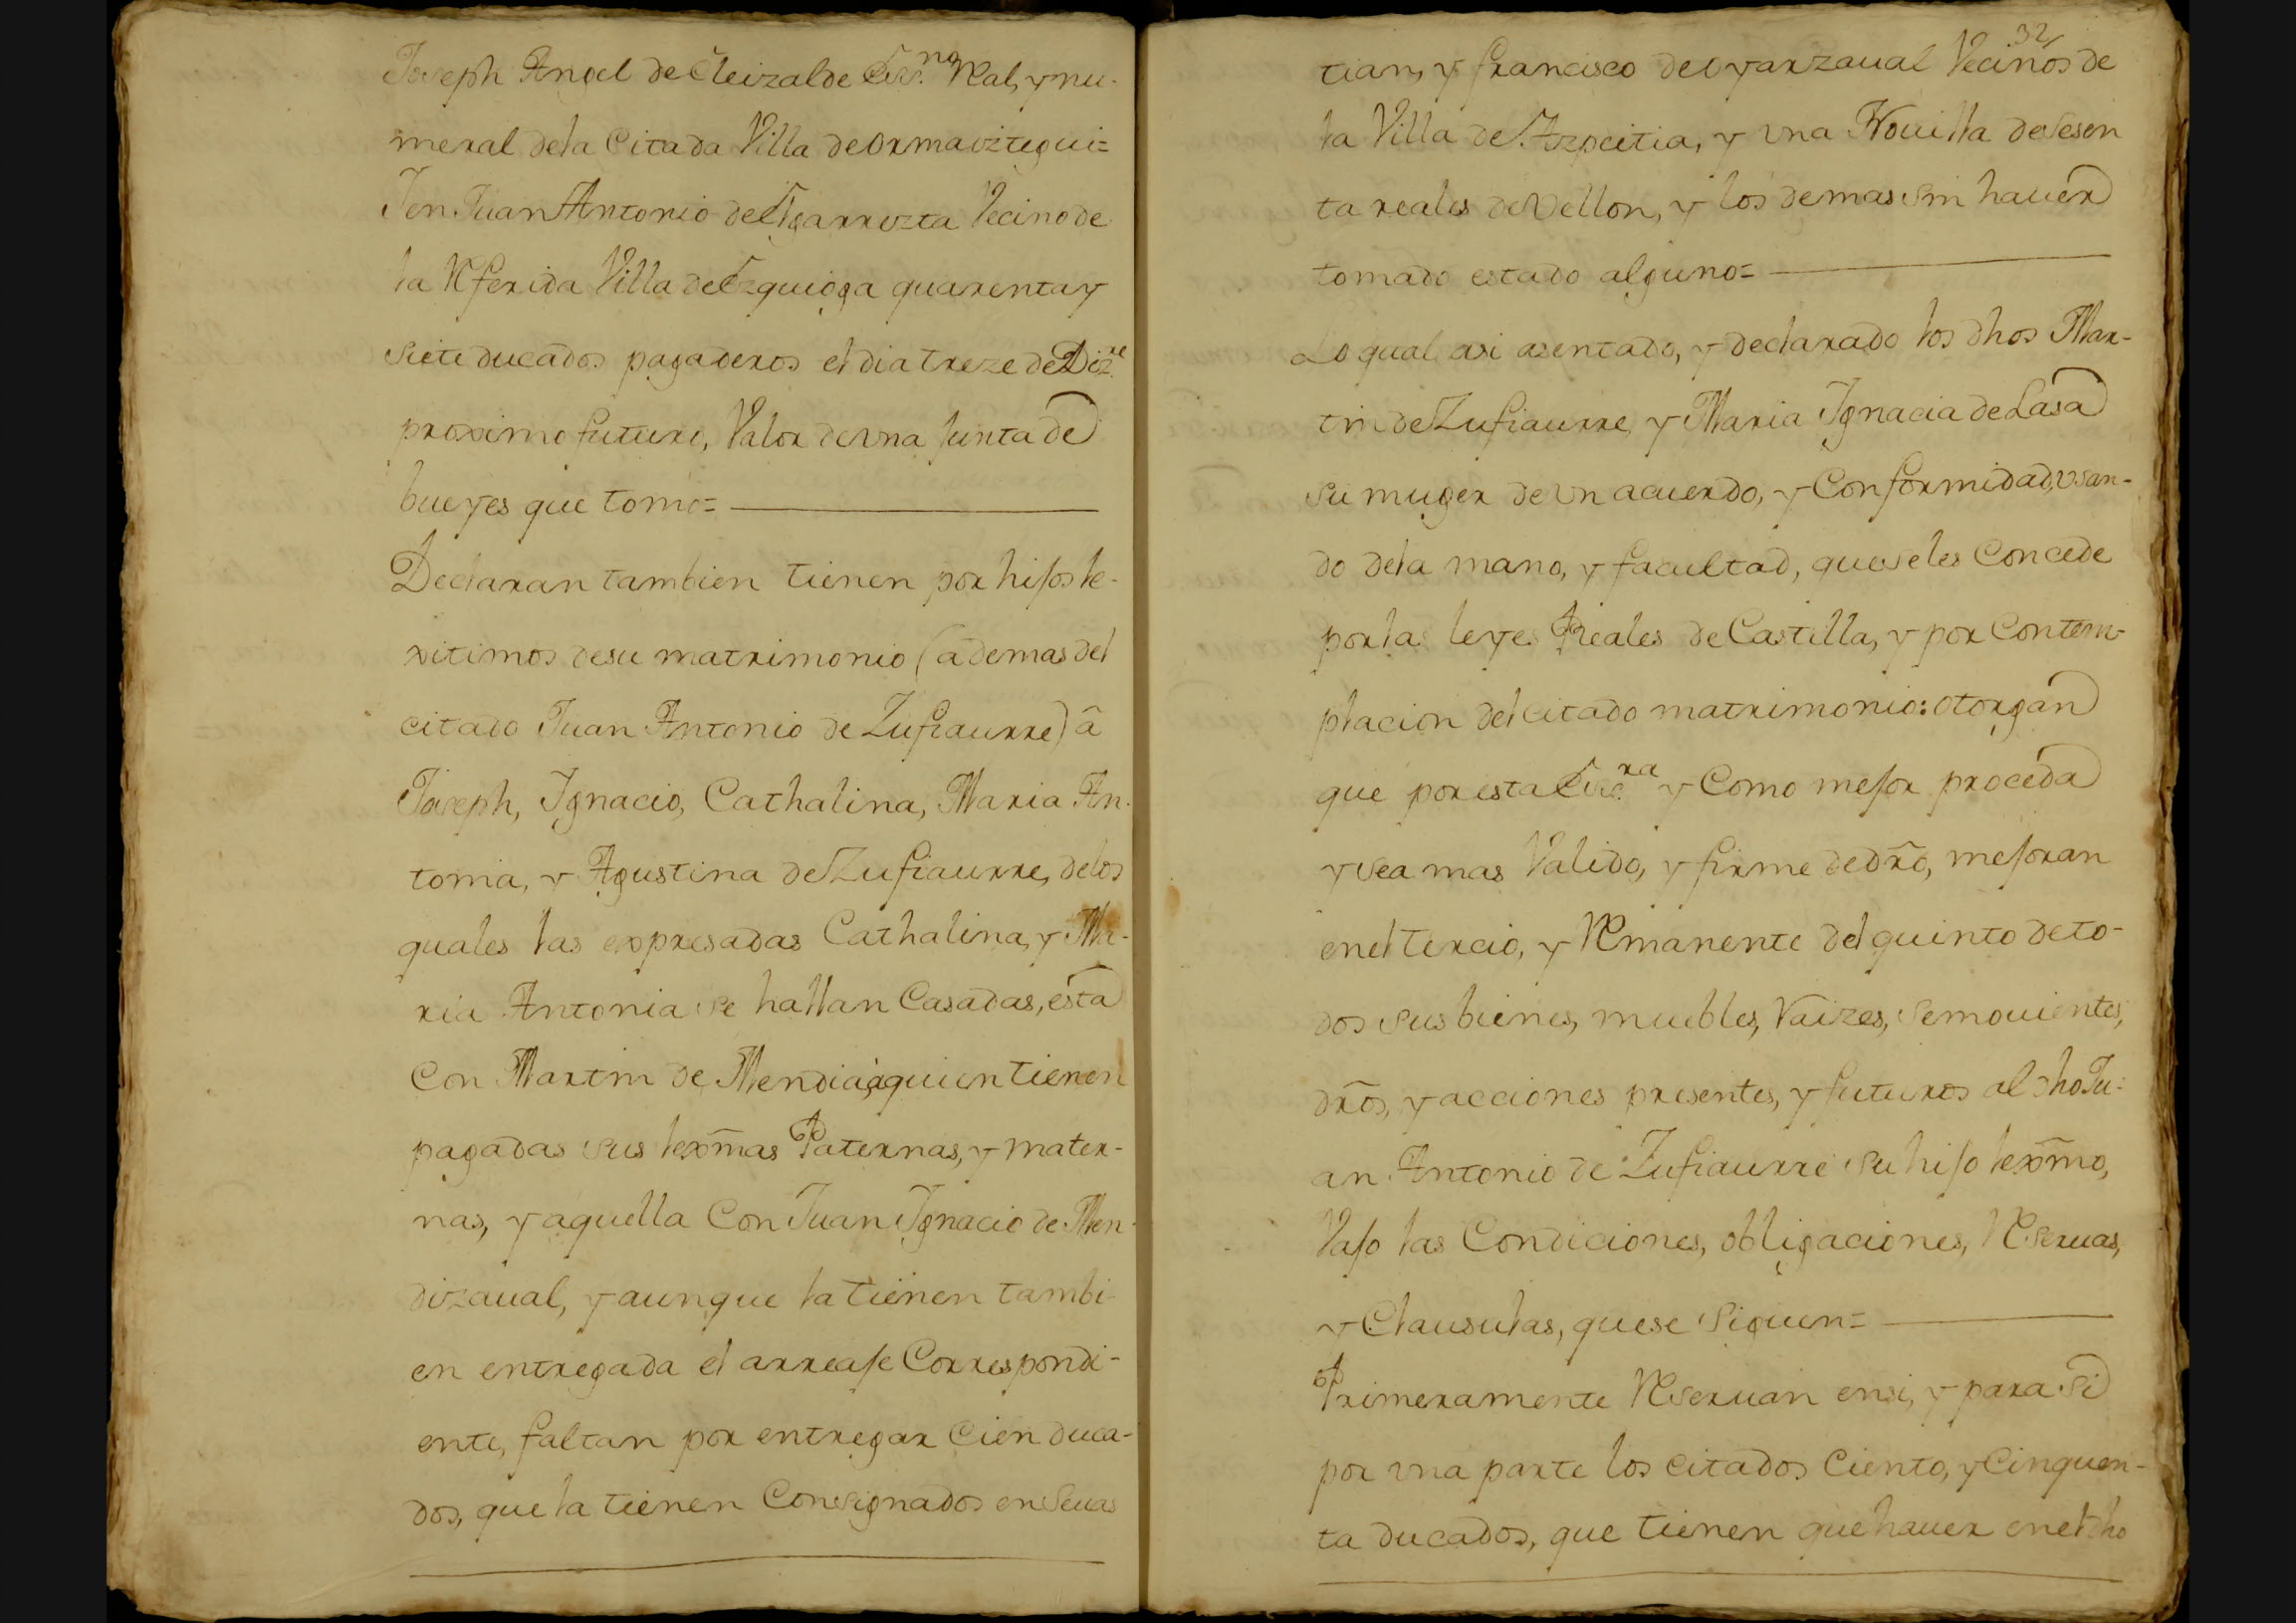 Joseph Angel de Eleizalde Ess.no Real, y nu-
meral dela Citada Villa de Ormaiztegui=
Ien Juan Antonio de Elgarrizta Vecino de
la Referida Villa de Ezquioga quarenta y
siete ducados pagaderos el dia treze de Diz.re
proximo futuro, Valor de vna Junta de
bueyes que tomo=
Declaran tambien tienen por hijos le-
xitimos desu matrimonio (ademas del
citado Juan Antonio de Zufiaurre) â
Joseph, Ignacio, Cathalina, Maria An-
tonia, y Agustina de Zufiaurre, delos
quales las expresadas Cathalina, y Ma-
ria Antonia se hallan Casadas, ésta
Con Martin de Mendia, à quien tienen
pagadas sus lexm̃as Paternas, y mater-
nas, y aquella Con Juan Ignacio de Men-
dizaual, y aunque la tienen tambi-
en entregada el arreaje Correspondi-
ente, faltan por entregar Cien duca-
dos, que la tienen Consignados en Seuas
32
tian, y francisco de oyarzaual Vecinos de
la Villa de Azpeitia, y vna Nouilla de sesen
ta reales de Vellon, y los demas sin hauer
tomado estado alguno=
Lo qual asi asentado, y declarado los dhos Mar-
tin de Zufiaurre, y Maria Ignacia de Lasa
su muger de vn acuerdo, y Conformidad, vsan-
do dela mano, y facultad, que se les Concede
por las leyes Reales de Castilla, y por Contem-
placion del citado matrimonio: otorgan
que por esta Ess.ra y Como mejor proceda
y sea mas Valido, y firme de dr̃o, mejoran
en el tercio, y Remanente del quinto de to-
dos sus bienes, muebles, Raizes, semouientes,
dr̃os, y acciones presentes, y futuros al dho Ju-
an Antonio de Zufiaurre su hijo lexm̃o,
Vajo las Condiciones, obligaciones, Reseruas,
y Clausulas, que se siguen=
Primeramente Reseruan en si, y para Si
por vna parte los citados Ciento, y Cinquen-
ta ducados, que tienen que hauer en el dho